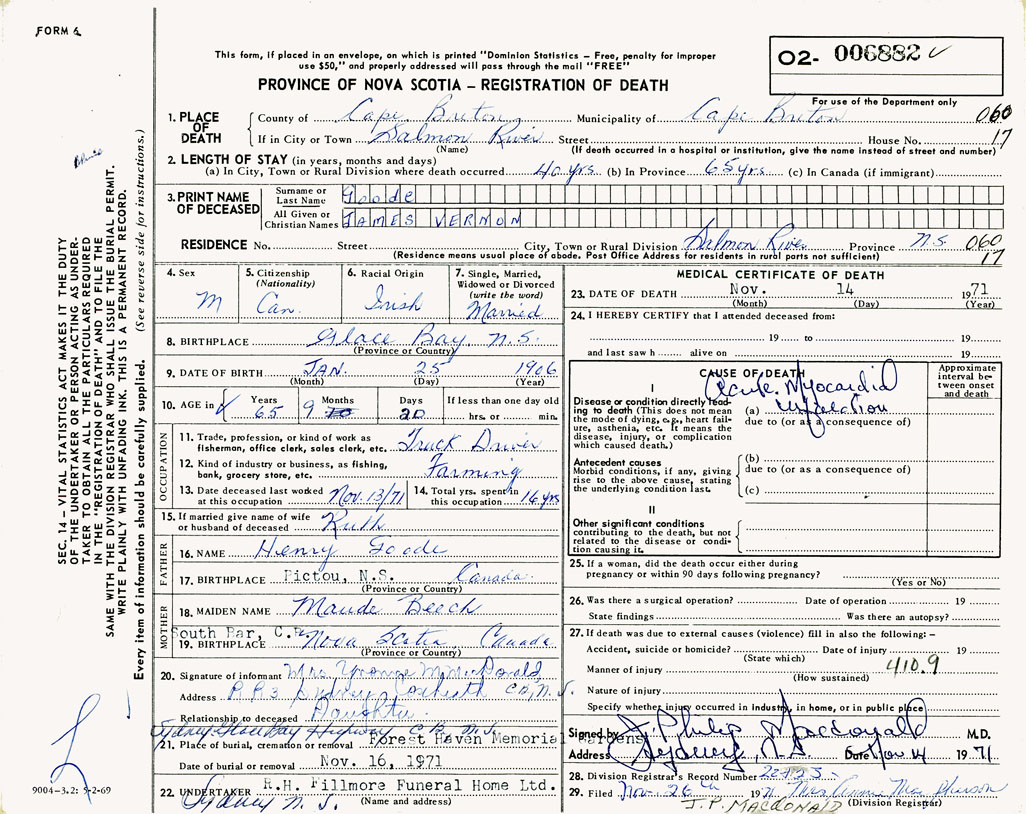 FORM 6
This form, if placed in an envelope, on which is printed "Dominion Statistics – Free, penalty for improper
use $50," and properly addressed will pass through the mail "FREE"
PROVINCE OF NOVA SCOTIA – REGISTRATION OF DEATH
02- 006882
For use of the Department only
060
17
1. PLACE OF DEATH
County of Cape Breton Municipality of Cape Breton
If in City or Town Salmon River Street House No.
(Name) (If death occurred in a hospital or institution, give the name instead of street and number)
2. LENGTH OF STAY (in years, months and days)
(a) In City, Town or Rural Division where death occurred 40 yrs (b) In Province 65 yrs (c) In Canada (if immigrant)
3. PRINT NAME OF DECEASED
Surname or Last Name Goode
All Given or Christian Names JAMES VERNON
RESIDENCE No. Street City, Town or Rural Division Salmon River Province N.S. 060
17
(Residence means usual place of abode. Post Office Address for residents in rural parts not sufficient)
4. Sex M
5. Citizenship (Nationality) Can.
6. Racial Origin Irish
7. Single, Married, Widowed or Divorced (write the word) Married
8. BIRTHPLACE Glace Bay N.S.
(Province or Country)
9. DATE OF BIRTH JAN. 25 1906
(Month) (Day) (Year)
10. AGE in Years 65 Months 9 Days 20 If less than one day old hrs. or min.
OCCUPATION
11. Trade, profession, or kind of work as fisherman, office clerk, sales clerk, etc. Truck Driver
12. Kind of industry or business, as fishing, bank, grocery store, etc. Farming
13. Date deceased last worked at this occupation Nov. 13/71
14. Total yrs. spent in this occupation 16 yrs
15. If married give name of wife or husband of deceased Ruth
FATHER
16. NAME Henry Goode
17. BIRTHPLACE Pictou, N.S. Canada
(Province or Country)
MOTHER
18. MAIDEN NAME Maude Beech
South Bar, C.B.
19. BIRTHPLACE Nova Scotia Canada
(Province or Country)
20. Signature of informant Mrs. Yvonne M. MacDonald
Address R R 3 Sydney Coxheath CB, N.S.
Relationship to deceased Daughter
Sydney Glace Bay Highway C.B. N.S.
21. Place of burial, cremation or removal Forest Haven Memorial Gardens
Date of burial or removal Nov. 16, 1971
22. UNDERTAKER R.H. Fillmore Funeral Home Ltd.
Sydney N.S. (Name and address)
MEDICAL CERTIFICATE OF DEATH
23. DATE OF DEATH Nov. 14 1971
(Month) (Day) (Year)
24. I HEREBY CERTIFY that I attended deceased from:
19 to 19
and last saw h alive on 19
CAUSE OF DEATH
Approximate interval between onset and death
I
Disease or condition directly leading to death (This does not mean the mode of dying, e.g., heart failure, asthenia, etc. It means the disease, injury, or complication which caused death.)
(a) Acute Myocardial Infarction
due to (or as a consequence of)
Antecedent causes
Morbid conditions, if any, giving rise to the above cause, stating the underlying condition last.
(b)
due to (or as a consequence of)
(c)
II
Other significant conditions contributing to the death, but not related to the disease or condition causing it.
25. If a woman, did the death occur either during pregnancy or within 90 days following pregnancy?
(Yes or No)
26. Was there a surgical operation? Date of operation 19
State findings Was there an autopsy?
27. If death was due to external causes (violence) fill in also the following:–
Accident, suicide or homicide? Date of injury 19
(State which)
Manner of injury 410.9
(How sustained)
Nature of injury
Specify whether injury occurred in industry, in home, or in public place
Signed by J. Philip Macdonald M.D.
Address Sydney, N.S. Date Nov 14 1971
28. Division Registrar's Record Number
29. Filed Nov. 26th 1971 Mrs Annie MacPherson
J.P. MACDONALD (Division Registrar)
SEC. 14 – VITAL STATISTICS ACT MAKES IT THE DUTY
OF THE UNDERTAKER OR PERSON ACTING AS UNDERTAKER
TO OBTAIN ALL THE PARTICULARS REQUIRED
IN THE "REGISTRATION OF DEATH" AND TO FILE THE
SAME WITH THE DIVISION REGISTRAR WHO SHALL ISSUE THE BURIAL PERMIT.
WRITE PLAINLY WITH UNFADING INK. THIS IS A PERMANENT RECORD.
Every item of information should be carefully supplied. (See reverse side for instructions.)
9004-3.2: 9-2-69